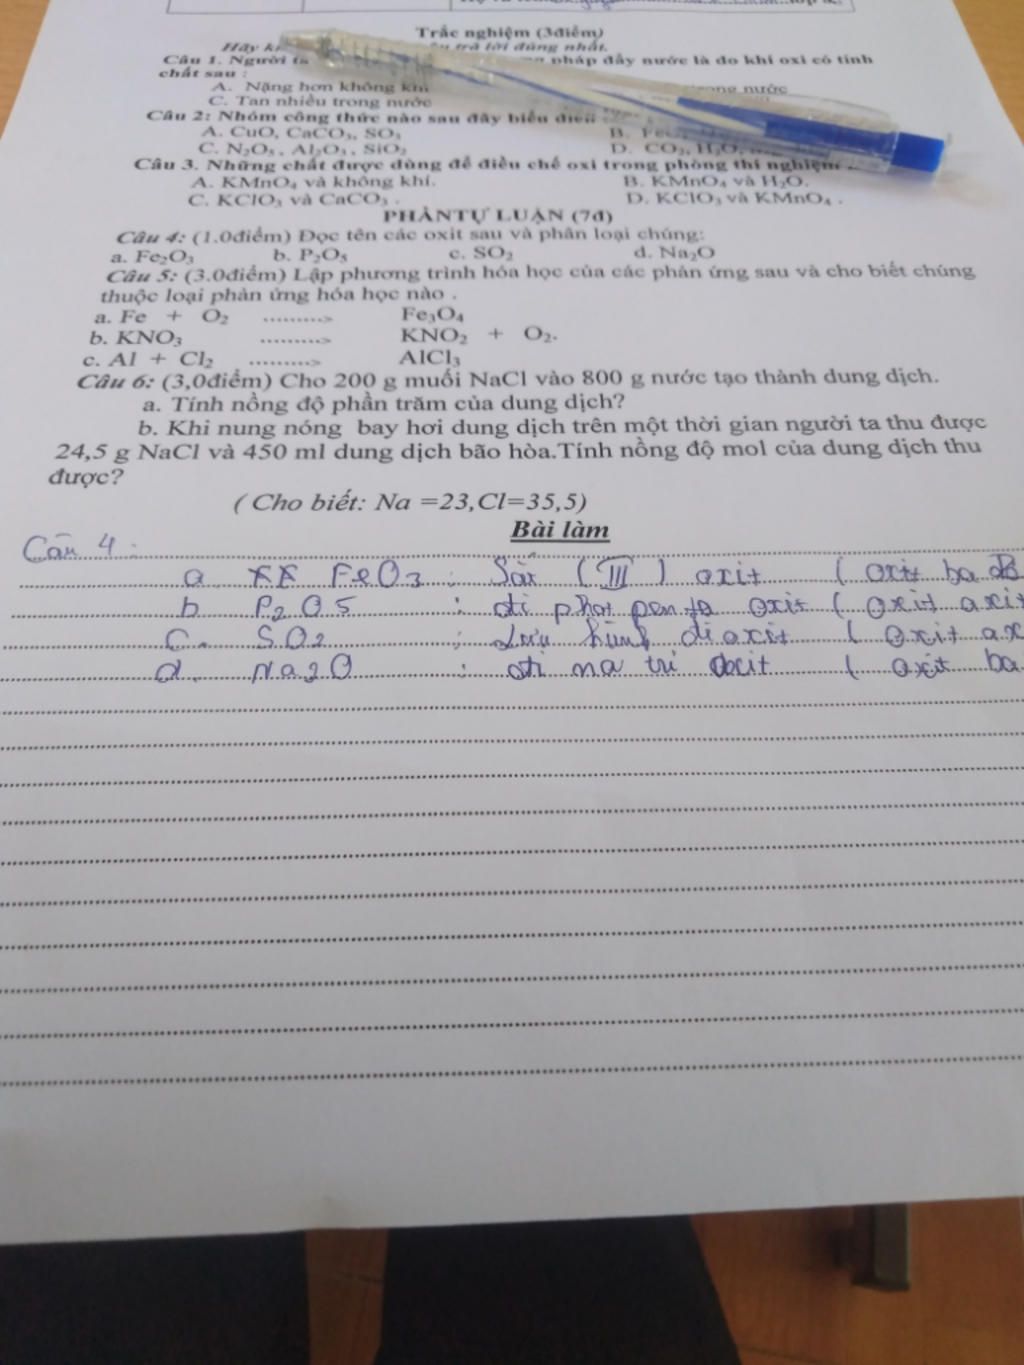 Trắc nghiệm (3điểm)
Hãy trả lời đúng nhất.
Câu 1. Người pháp đẩy nước là do khí oxi có tính
chất sau :
A. Nặng hơn không khí nước
C. Tan nhiều trong nước
Câu 2: Nhóm công thức nào sau đây biểu diễn
A. CuO, CaCO₃, SO₃ B.
C. N₂O₅ , Al₂O₃ , SiO₂ D. CO₂, H₂O,
Câu 3. Những chất được dùng để điều chế oxi trong phòng thí nghiệm
A. KMnO₄ và không khí. B. KMnO₄ và H₂O.
C. KClO₃ và CaCO₃ . D. KClO₃ và KMnO₄ .
PHẦNTỰ LUẬN (7đ)
Câu 4: (1.0điểm) Đọc tên các oxit sau và phân loại chúng:
a. Fe₂O₃ b. P₂O₅ c. SO₂ d. Na₂O
Câu 5: (3.0điểm) Lập phương trình hóa học của các phản ứng sau và cho biết chúng
thuộc loại phản ứng hóa học nào .
a. Fe + O₂ .........> Fe₃O₄
b. KNO₃ .........> KNO₂ + O₂.
c. Al + Cl₂ .........> AlCl₃
Câu 6: (3,0điểm) Cho 200 g muối NaCl vào 800 g nước tạo thành dung dịch.
a. Tính nồng độ phần trăm của dung dịch?
b. Khi nung nóng bay hơi dung dịch trên một thời gian người ta thu được
24,5 g NaCl và 450 ml dung dịch bão hòa.Tính nồng độ mol của dung dịch thu
được?
( Cho biết: Na =23,Cl=35,5)
Bài làm
Câu 4 :
a FeO₃ : Sắt (III) oxit ( oxit ba
b P₂O₅ : đi phot pen ta oxit ( oxit axit
c. SO₂ : Lưu huỳnh đi oxit ( oxit ax
d. Na₂O : đi na tri oxit ( oxit ba